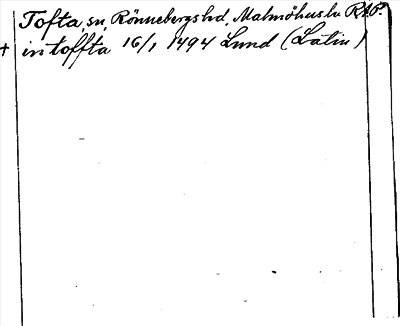 Tofta, sn, Rönnebergs hd, Malmöhus ln RAP.
+ in toffta 16/1 1494 Lund (Latin)